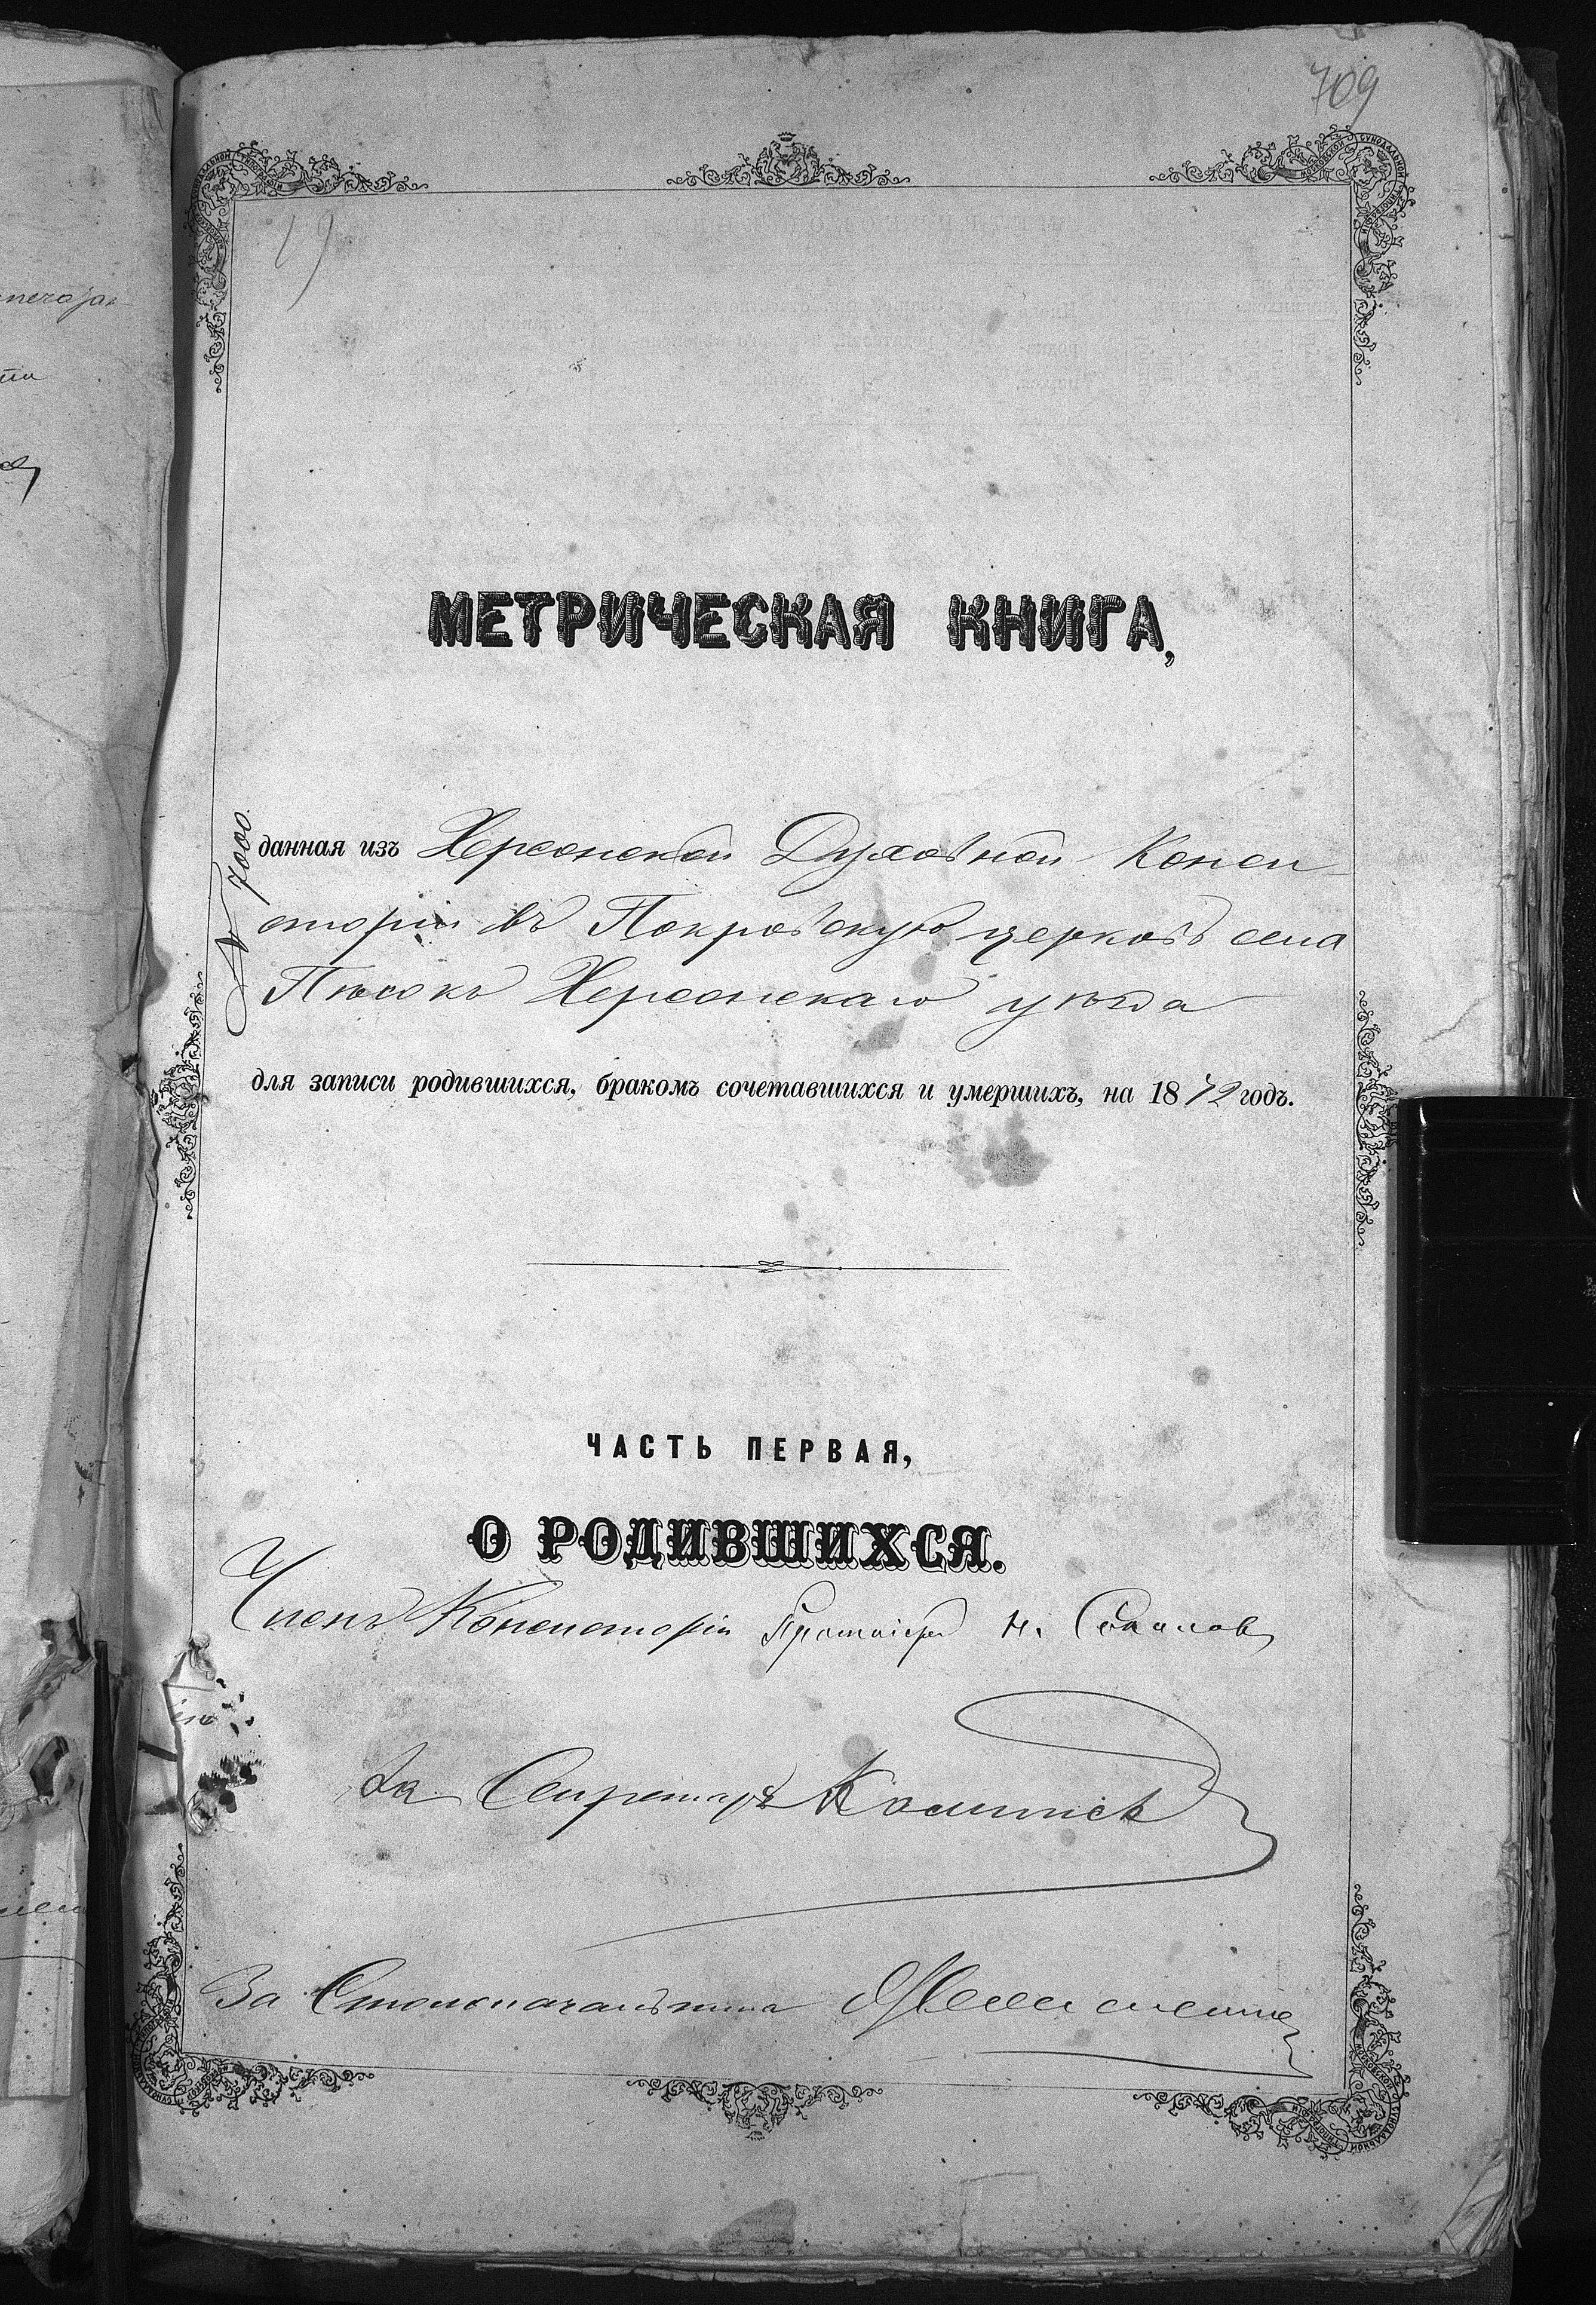 709
19
МЕТРИЧЕСКАЯ КНИГА,
№ 7000.
данная изъ Херсонской Духовной Конси-
сторіи въ Покровскую церковь села
Пѣсокъ Херсонскаго уѣзда
для записи родившихся, бракомъ сочетавшихся и умершихъ, на 1872 годъ.
ЧАСТЬ ПЕРВАЯ,
О РОДИВШИХСЯ.
Членъ Консисторіи Протоіерей Н. Соколов
За Секретаря
За Столоначальника